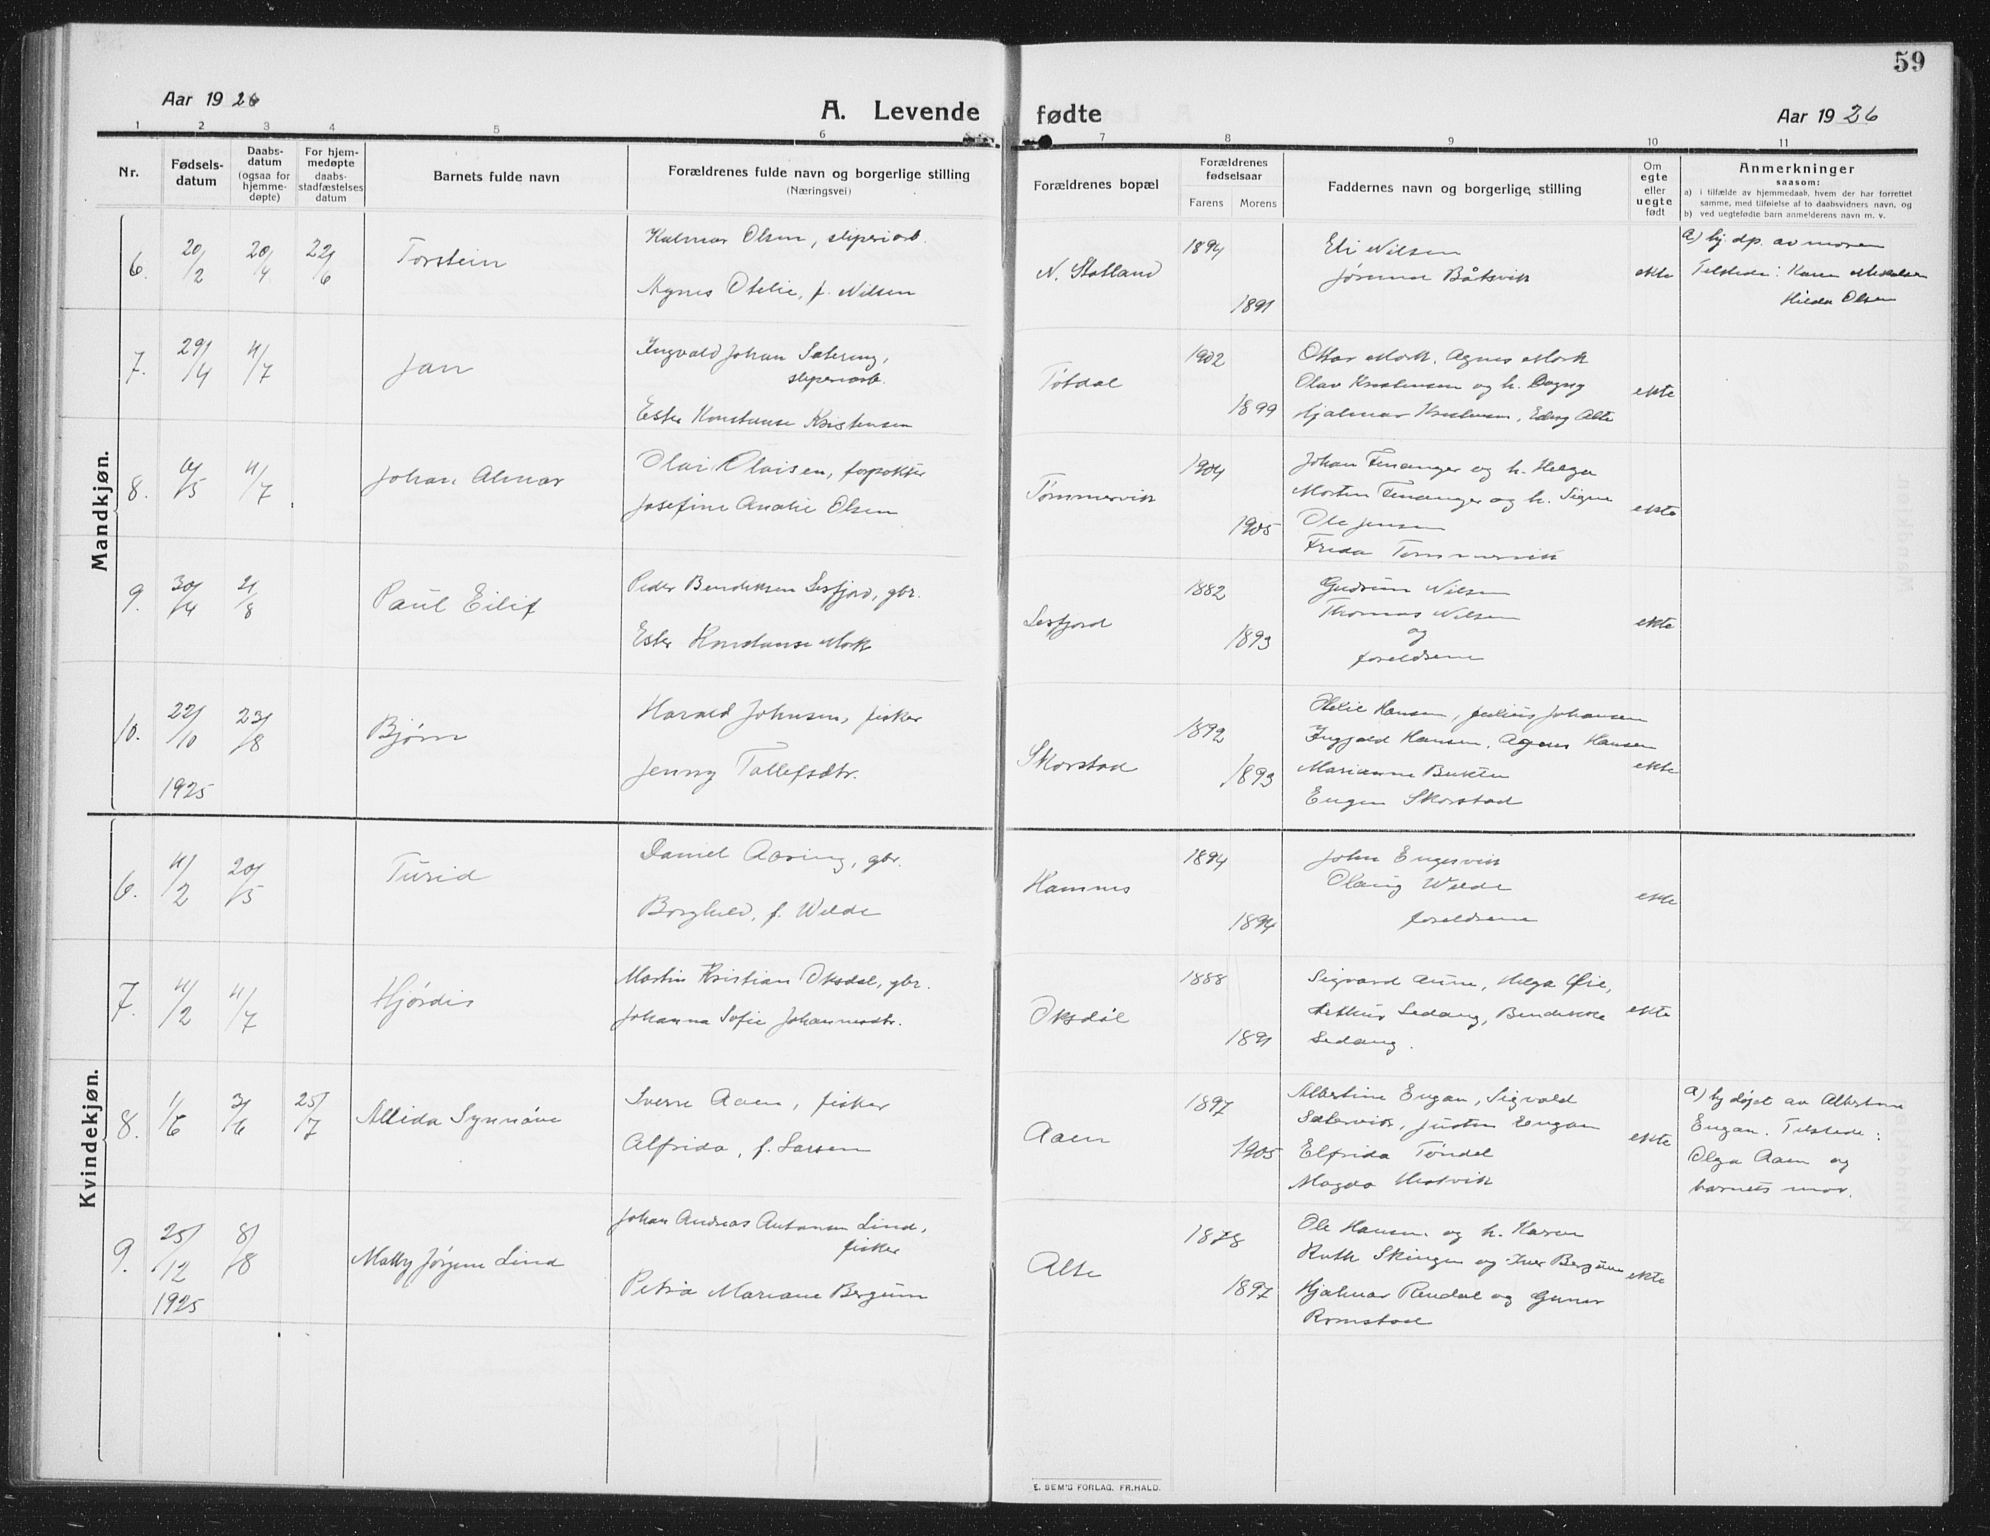 59
Aar 1926
A. Levende fødte
Aar 1926
1 2 3 4 5 6 7 8 9 10 11
Nr.
Fødsels-
datum
Daabs-
datum
(ogsaa for
hjemme-
døpte)
For hjem-
medøpte
daabs-
stadfæstelses
datum
Barnets fulde navn
Forældrenes fulde navn og borgerlige stilling
(Næringsvei)
Forældrenes bopæl
Forældrenes
fødselsaar
Farens Morens
Faddernes navn og borgerlige stilling
Om
egte
eller
uegte
født
Anmerkninger
saasom:
a) i tilfælde av hjemmedaab, hvem der har forrettet
samme, med tilføielse av to daabsvidners navn, og
b) ved uegtefødte barn anmelderens navn m. v.
Mandkjøn.
6. 20/2 20/4 22/6 Torstein
Halmar Olsen, sliperiarb.
Agnes Otelie, f. Nilsen
N. Statland
1894
1891
Eli Nilsen
Båtsvik
ekte
a) hj. dp. av moren
Tilstede: Karen
Hilda Olsen
7. 29/4 11/7 Jan
Ingvald Johan
sliperiarb.
Ester Konstanse Kristensen
Tøtdal
1902
1899
Oskar Mork, Agnes Mork
Olav Kristensen og h. Dagny
Hjalmar Kristensen, Alte
ekte
8. 11/7 Johan Almar
Olai Olaisen, forpakter
Josefine Analie Olsen
Tømmervik
1904
1905
Johan Finanger og h. Helga
Morten Finanger og h. Signe
Ole Jensen
Frida Tømmervik
ekte
9. 30/4 Paul Eilif
Peder Bendiksen Sesfjord, gbr.
Ester Konstanse Mork
Sesfjord
1882
1893
Gudrun Nilsen
Thomas Nilsen
og
foreldrene
ekte
10. 22/10 23/8 Bjørn
1925
Harald Johnsen, fisker
Jenny Tollefsdtr.
Skorstad
1892
1893
Hansen, Julius Johansen
Ingjald Hansen, Agnes Hansen
Marianne
Eugen Skorstad
ekte
Kvindekjøn.
6. 11/2 20/5 Turid
Daniel Aaring, gbr.
Borghild, f. Welde
Hamnes
1894
1894
John Engesvik
Olaug Welde
foreldrene
ekte
7. 11/2 11/7 Hjørdis
Martin Kristian Oksdøl, gbr.
Johanna Sofie Johannesdtr.
Oksdøl
1888
1891
Sigvard Aune, Helga Øie,
Arthur Sedang,
Sedang.
ekte
8. 1/6 3/6 25/7 Allida Synnøve
Sverre Aaen, fisker
Alfrida, f. Larsen
Aaen
1897
1905
Albertine Engan, Sigvald
Sætervik, Justin Engan
Elfrida Tøndel
Magda Hestvik
ekte
a) hj. døpt av Albertine
Engan. Tilstede:
Olga Aaen og
barnets mor.
9. 25/12 8/8 Matty Jørgine Lind
1925
Johan Andreas Antonsen Lind,
fisker
Petra Mariane Bergum
Alte
1878
1897
Ole Hansen og h. Karen
Ruth Skingen og Iver Bergum
Hjalmar Rendal og Gunar
Romstad
ekte
E. SEM'S FORLAG, FR.HALD.